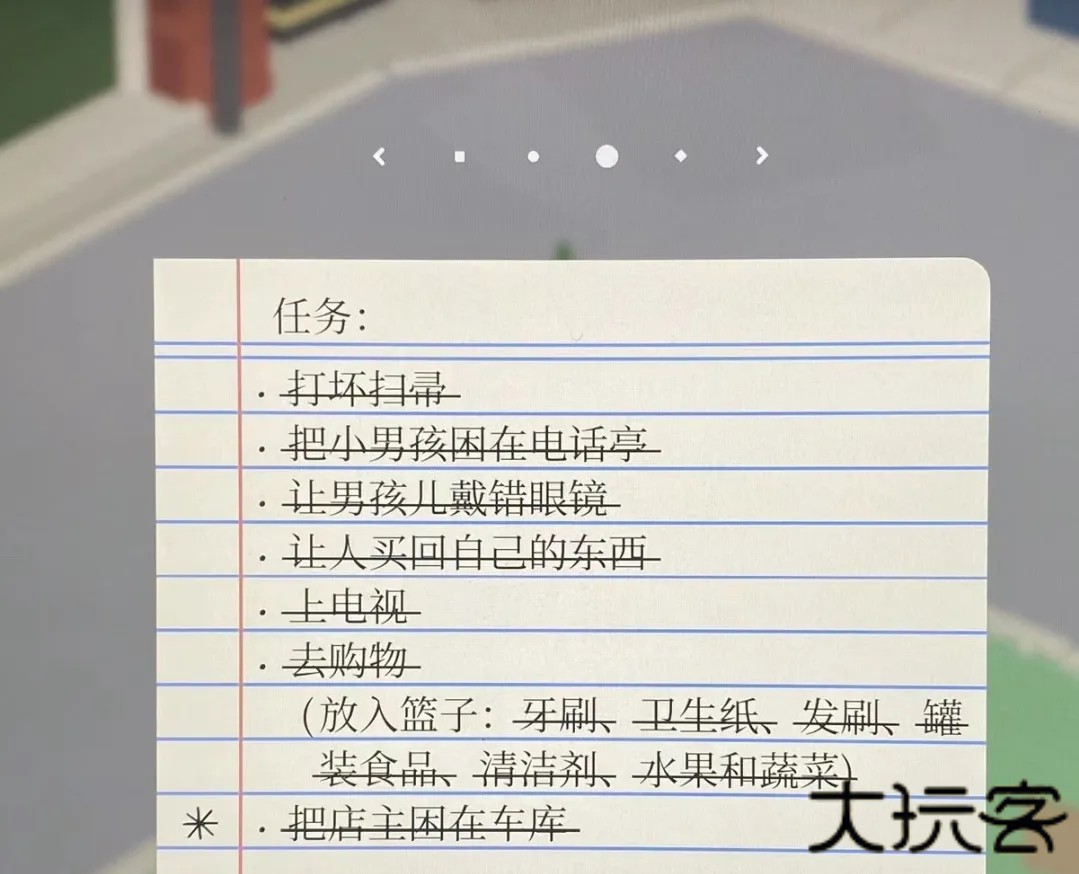 任务：
· 打坏扫帚
· 把小男孩困在电话亭
· 让男孩儿戴错眼镜
· 让人买回自己的东西
· 上电视
· 去购物
（放入篮子：牙刷、卫生纸、发刷、罐
装食品、清洁剂、水果和蔬菜）
· 把店主困在车库
大玩客